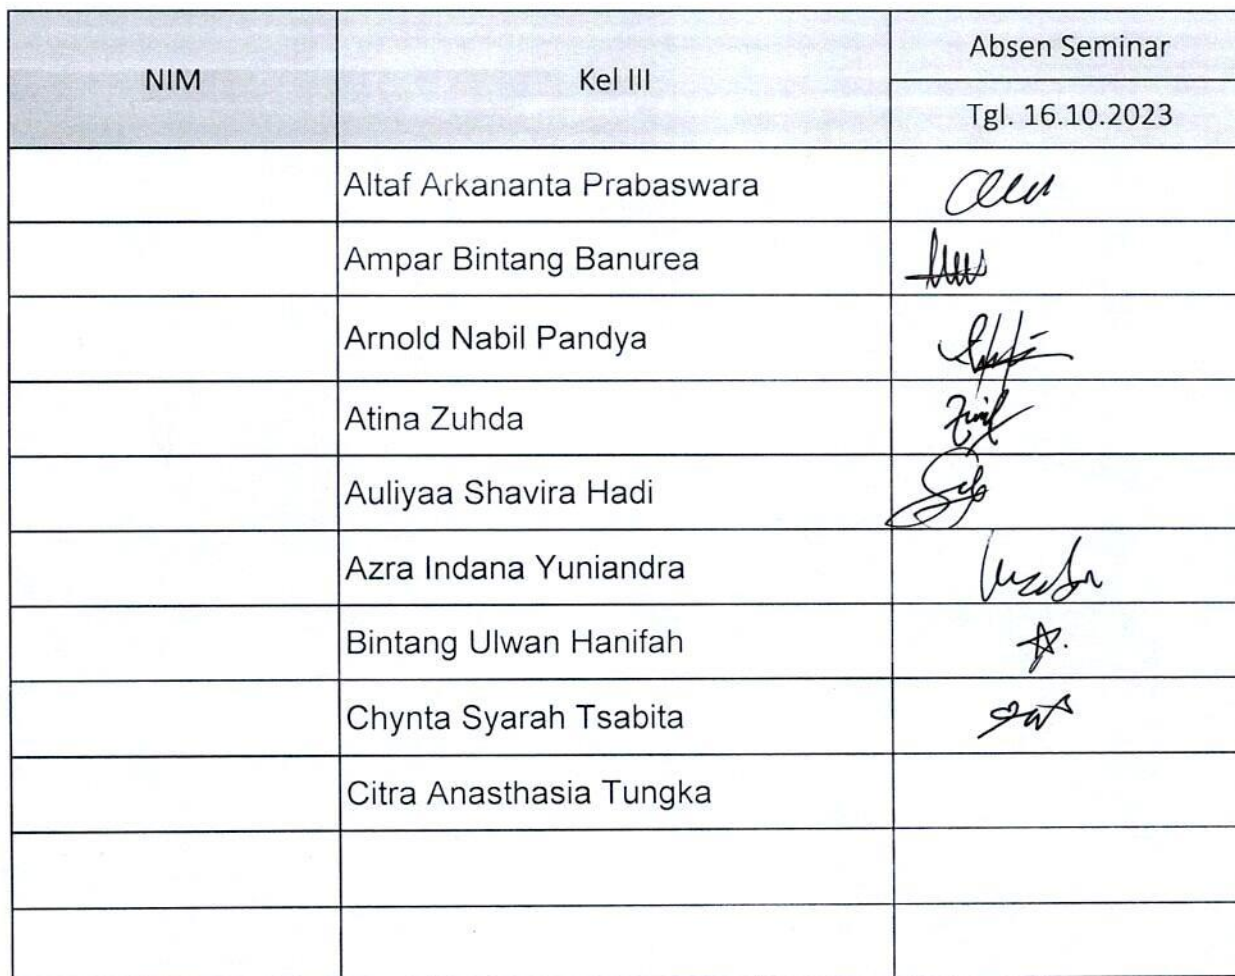 NIM
Kel III
Absen Seminar
Tgl. 16.10.2023
Altaf Arkananta Prabaswara
Ampar Bintang Banurea
Arnold Nabil Pandya
Atina Zuhda
Auliyaa Shavira Hadi
Azra Indana Yuniandra
Bintang Ulwan Hanifah
Chynta Syarah Tsabita
Citra Anasthasia Tungka